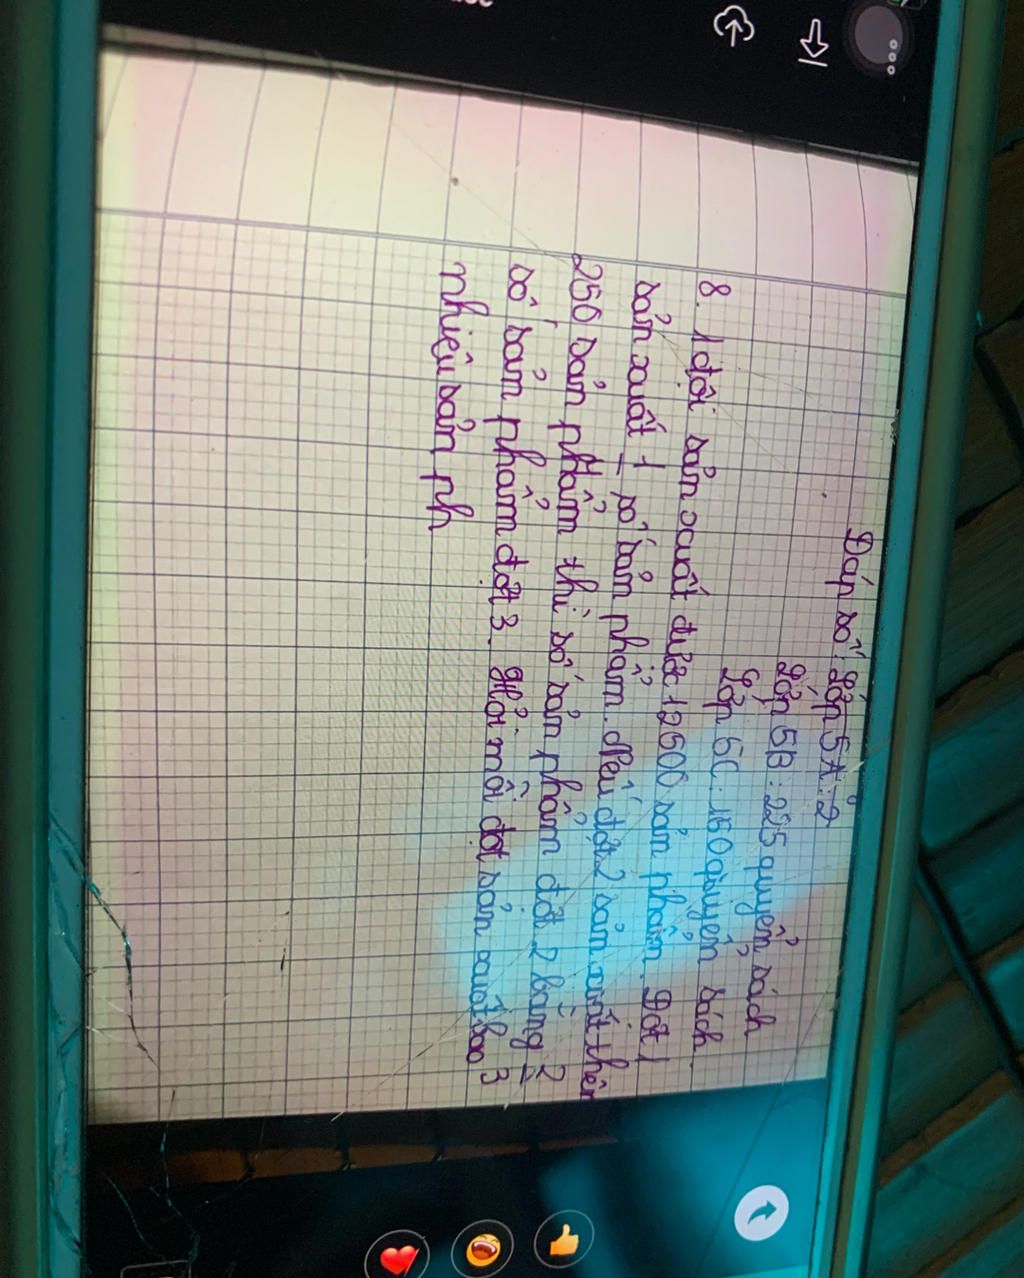 Đáp số: Lớp 5A: 2
Lớp 5B: 225 quyển sách
Lớp 5C: 150 quyển sách
8. 1 đội sản xuất được 12500 sản phẩm. Đợt 1
sản xuất 1 số sản phẩm. Nếu đợt 2 sản xuất thêm
250 sản phẩm thì số sản phẩm đợt 2 bằng 2
số sản phẩm đợt 3. Hỏi mỗi đợt sản xuất bao 3
nhiêu sản ph